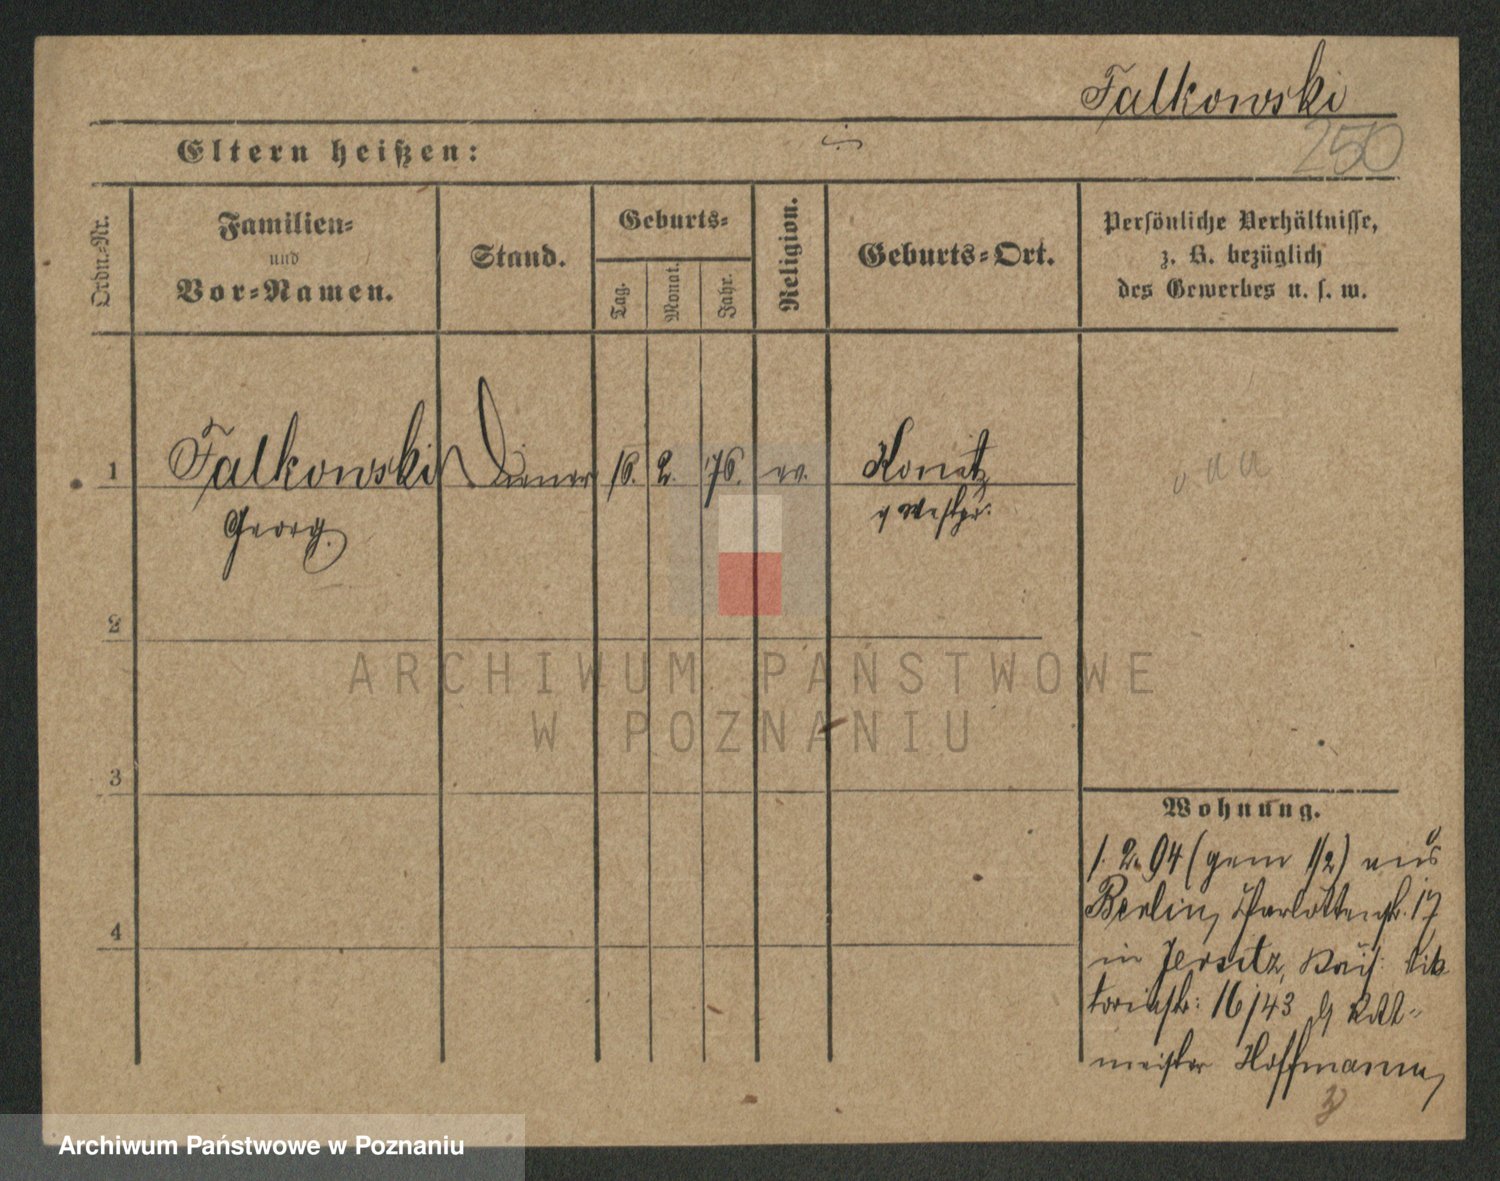 Falkowski
250
Eltern heißen:
Ordn.-Nr.
Familien-
und
Vor-Namen.
Stand.
Geburts-
Tag.
Monat.
Jahr.
Religion.
Geburts-Ort.
Persönliche Verhältnisse,
z. B. bezüglich
des Gewerbes u. s. w.
1 Falkowski Diener 16. 2. 76. ev. Konitz
Georg. Westpr:
2
3
4
Wohnung.
1. 2. 94 (gem 1/2) aus
Berlin, Charlottenstr. 17
in Jersitz, Kais: Vik
toriastr: 16/43 b Ritt-
meister Hoffmann,
ARCHIWUM PAŃSTWOWE
W POZNANIU
Archiwum Państwowe w Poznaniu